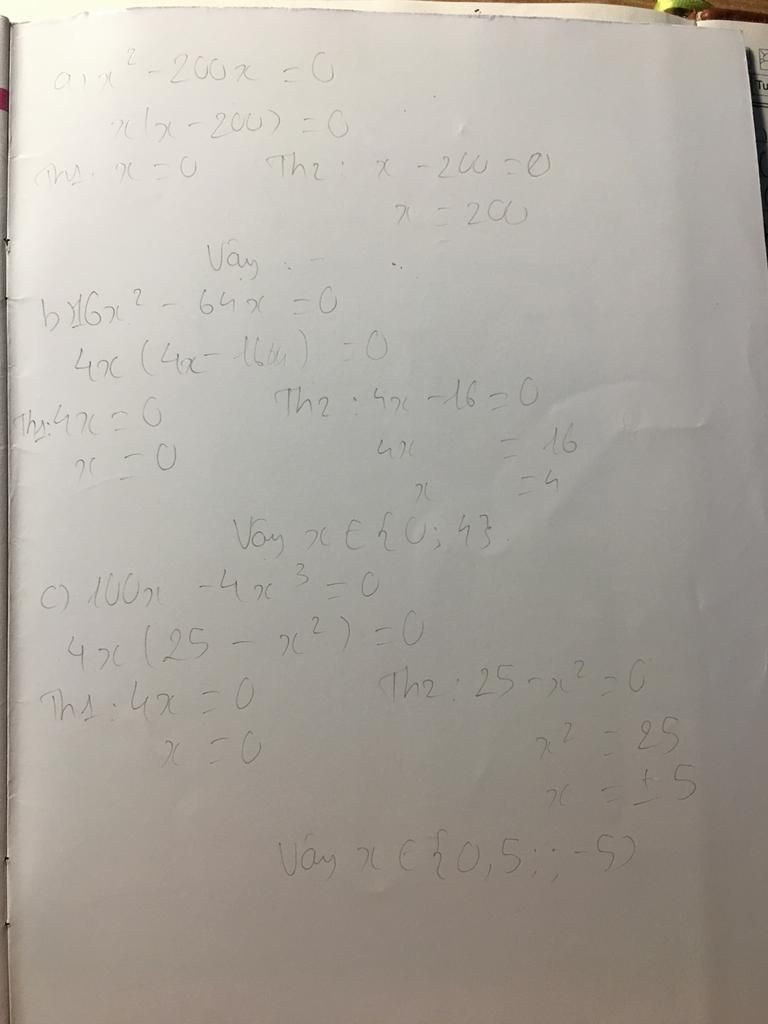 a) x² - 200x = 0
x(x - 200) = 0
Th1: x = 0 Th2: x - 200 = 0
x = 200
Vây : - ..
b) 16x² - 64x = 0
4x (4x - 16) = 0
Th1: 4x = 0 Th2: 4x - 16 = 0
x = 0 4x = 16
x = 4
Vây x ∈ {0; 4}.
c) 100x - 4x³ = 0
4x (25 - x²) = 0
Th1: 4x = 0 Th2: 25 - x² = 0
x = 0 x² = 25
x = ± 5
Vây x ∈ {0, 5; ; -5)